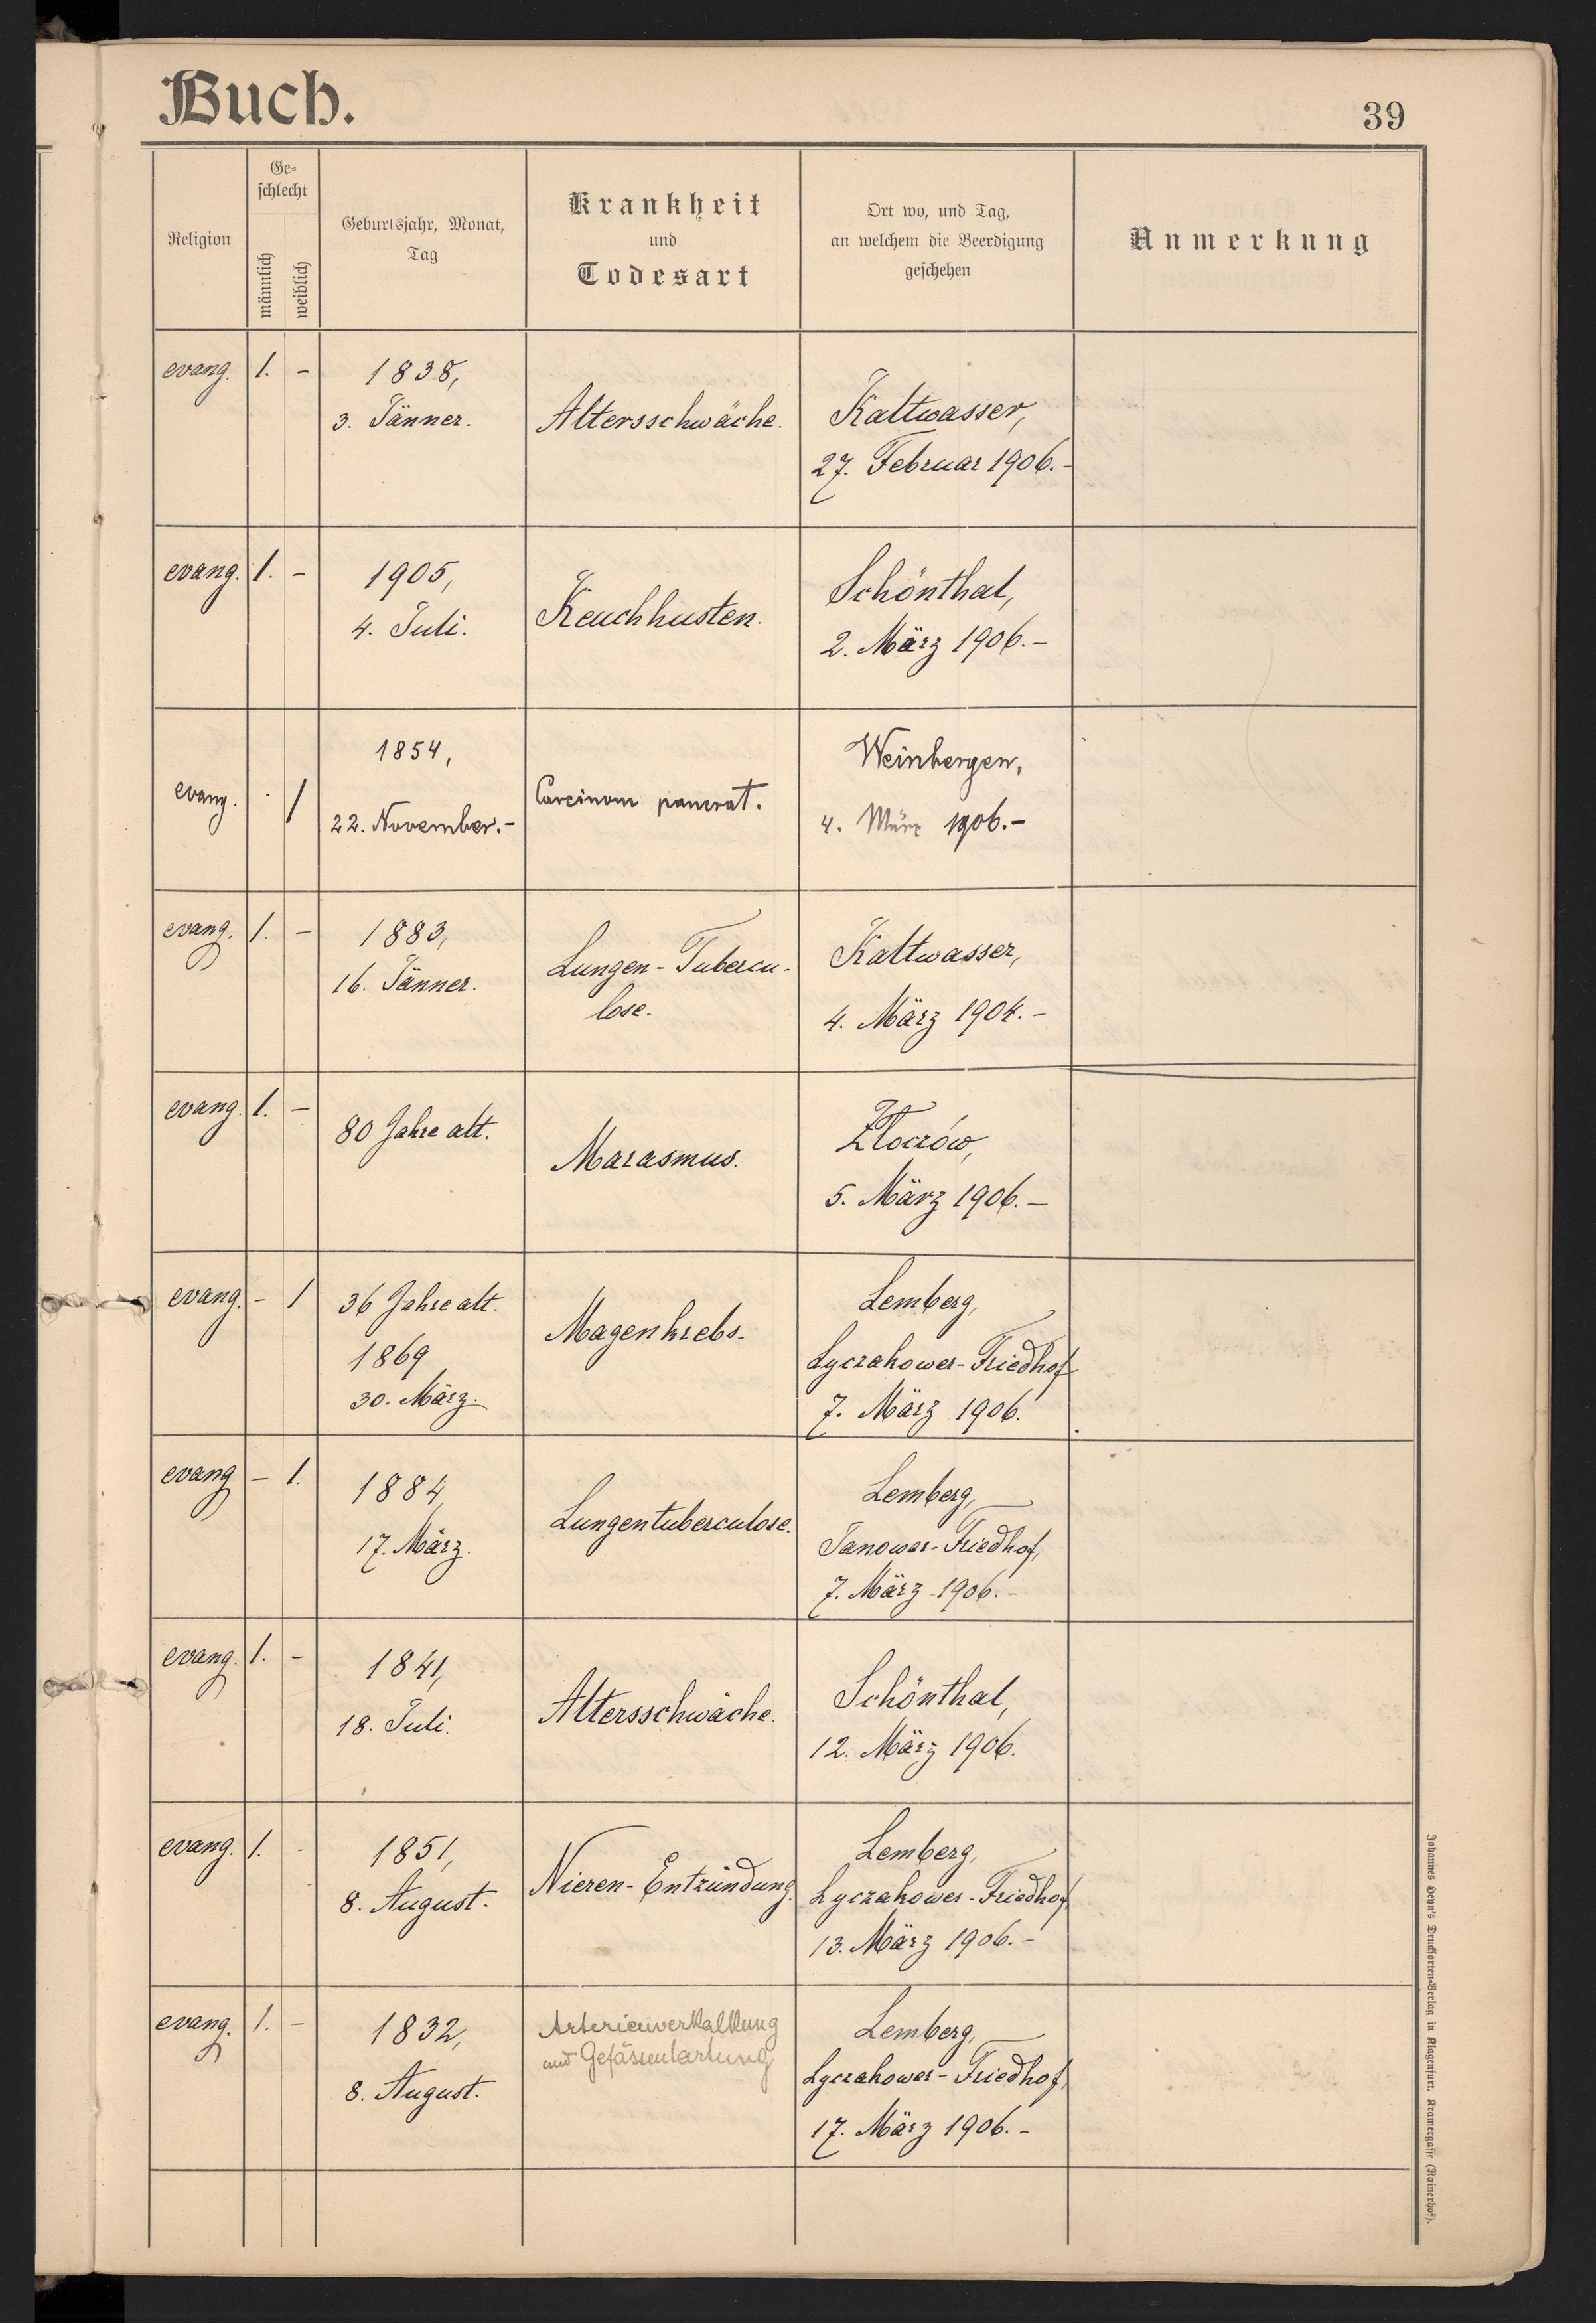 Buch.
39
Religion
Ge-
schlecht
männlich
weiblich
Geburtsjahr, Monat,
Tag
Krankheit
und
Todesart
Ort wo, und Tag,
an welchem die Beerdigung
geschehen
Anmerkung
evang. 1. -
1838,
3. Jänner.
Altersschwäche.
Kaltwasser,
27. Februar 1906.-
evang. 1. -
1905,
4. Juli.
Keuchhusten.
Schönthal,
2. März 1906.-
evang. . 1
1854,
22. November.-
Carcinom pancreat.
Weinbergen,
4. März 1906.-
evang. 1. -
1883,
16. Jänner.
Lungen-Tubercu-
lose.
Kaltwasser,
4. März 1904.-
evang. 1. -
80 Jahre alt.
Marasmus.
Złoczów,
5. März 1906.-
evang. - 1
36 Jahre alt.
1869
30. März.
Magenkrebs.
Lemberg,
Lyczakower-Friedhof
7. März 1906.
evang - 1.
1884,
17. März.
Lungentuberculose.
Lemberg,
Janower-Friedhof,
7. März 1906.-
evang. 1. -
1841,
18. Juli.
Altersschwäche.
Schönthal,
12. März 1906.
evang. 1. -
1851,
8. August.
Nieren-Entzündung.
Lemberg,
Lyczakower-Friedhof,
13. März 1906.-
evang. 1. -
1832,
8. August.
Arterienverkalkung
und Gefässentartung
Lemberg,
Lyczakower-Friedhof,
17. März 1906.-
Johannes Heyn's Drucksorten-Verlag in Klagenfurt, Kramergasse (Rainerhof).